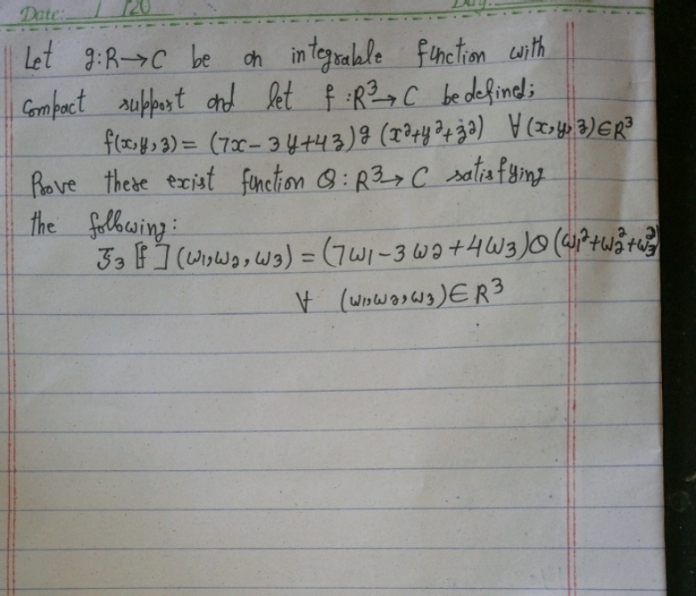 Date: / /20
Let g:R→C be an integrable function with
compact support and let f:R³→C be defined;
f(x,y,z) = (7x-3y+4z)g (x²+y²+z²) ∀ (x,y,z)∈R³
Prove there exist function Q:R³→C satisfying
the following:
F3 [f](ω1,ω2,ω3) = (7ω1-3ω2+4ω3)Q(ω1²+ω2²+ω3²)
∀ (ω1,ω2,ω3)∈R³